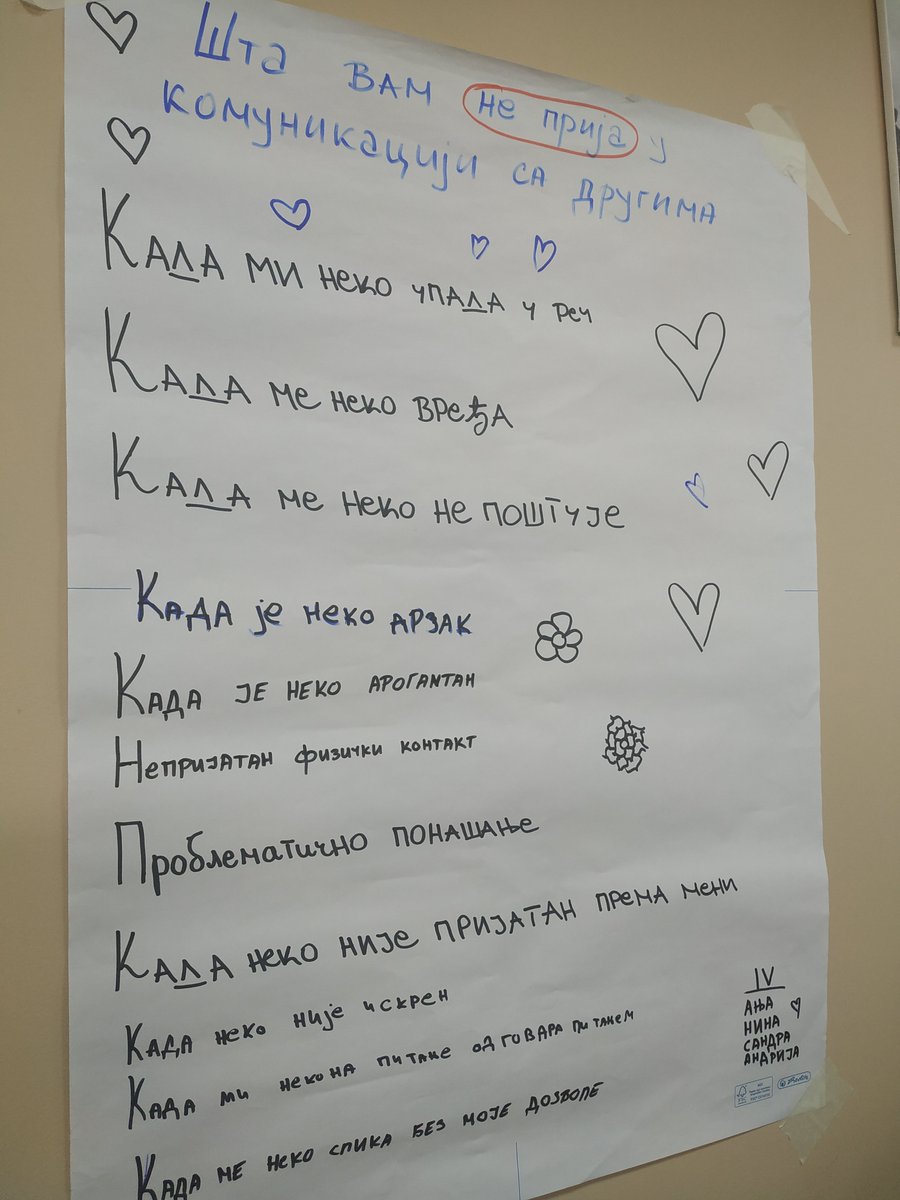 Шта вам не прија у
комуникацији са другима
Када ми неко упада у реч
Када ме неко вређа
Када ме неко не поштује
Када је неко дрзак
Када је неко арогантан
Непријатан физички контакт
Проблематично понашање
Када неко није пријатан према мени
Када неко није искрен
Када ми неко на питање одговара питањем
Када ме неко слика без моје дозволе
IV
Ања
Нина
Сандра
Андрија